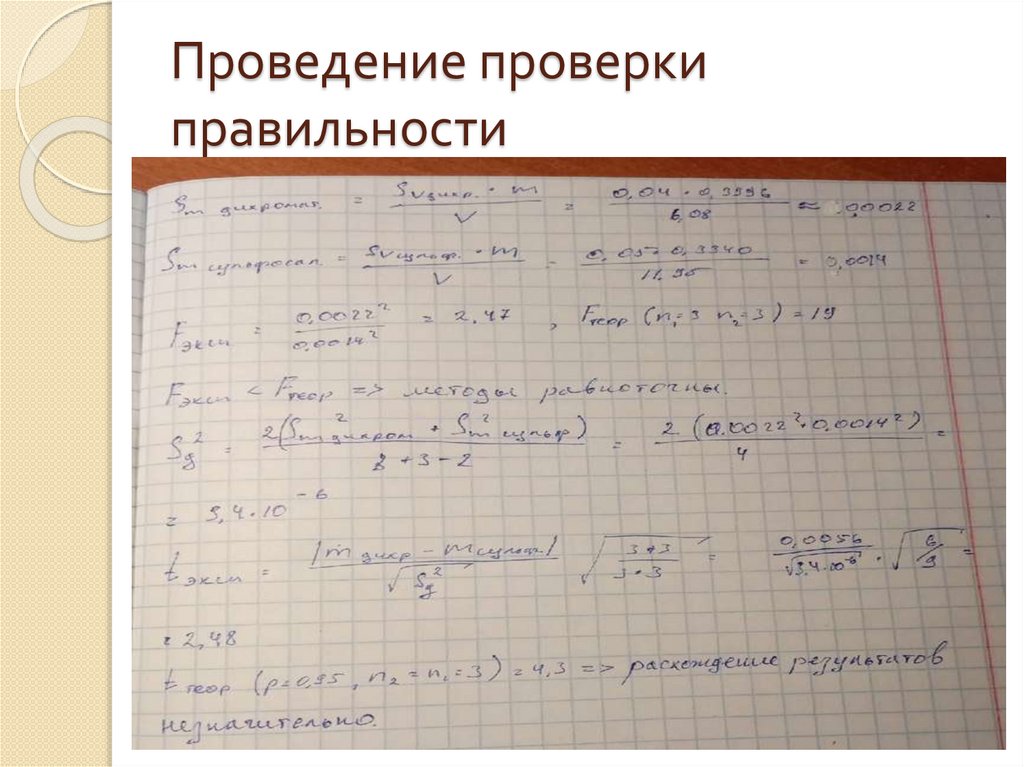 Проведение проверки
правильности
Sm дихромат. = SV дихр. · m / V = 0,04 · 0,3996 / 6,08 ≈ 0,00022
Sm сульфосал. = SV сульф. · m / V = 0,05 · 0,3340 / 11,95 = 0,0014
Fэксп = 0,0022² / 0,0014² = 2,47 , Fтеор (n₁=3 n₂=3) = 19
Fэксп < Fтеор => методы равноточны.
Sд² = 2(Sm дихром² + Sm сульф²) / 3+3-2 = 2(0.0022²+0,0014²) / 4 =
= 3,4·10⁻⁶
tэксп = |m̄ дихр - m̄ сульф.| / √Sд² √3+3 / 3·3 = 0,0056 / √3.4·10⁻⁶ · √6/9 =
= 2,48
tтеор (p=0,95, n₂=n₁=3) = 4,3 => расхождение результатов
незначительно.